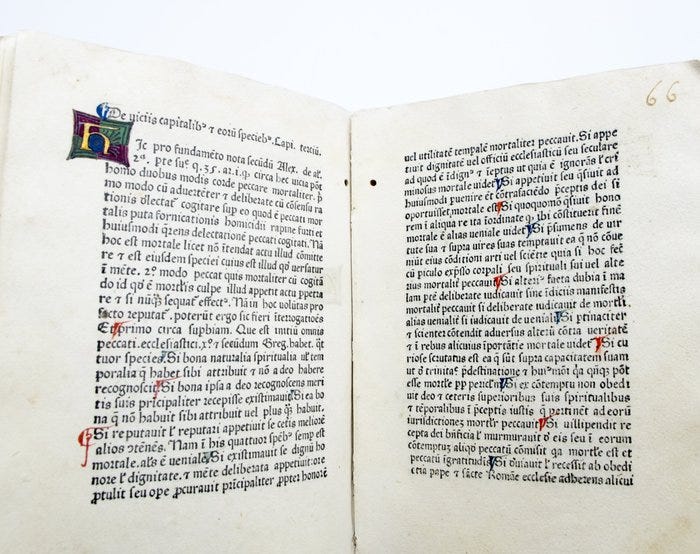 De viciis capitalibꝰ ⁊ eorū speciebꝰ. Capi. terciū.
Hic pro fundamēto nota secūdū Alex. de al.
2ª. pte suę q. 35. ar. i. q. circa hec vicia pōt
homo duobus modis corde peccare mortaliter. p̄
mo modo cū aduertēter ⁊ deliberate cū cōsensu ra
tionis delectatᷣ cogitare sup eo quod ē peccati mor
talis puta fornicationis homicidii rapine furti et
huiusmodi q̄rens delectationē peccati cogitati. Nā
hoc est mortale licet nō ītendat actu illud cōmitte
re ⁊ est eiusdem speciei cuius est illud qd̓ versatur
ī mēte. 2º modo peccat quis mortaliter cū cogitā
do id qd̓ ē mortale culpe illud appetit actu ppetra
re ⁊ si nūq̄ sequatᷣ effectꝰ. Nam in hoc volūtas pro
facto reputatᷣ. poterūt ergo sic fieri īterrogatōes
Et primo circa supbiam. Que est initiū omnis
peccati. ecclesiastici. xº. ⁊ secūdum Greg. habet. q̄t
tuor species. Si bona naturalia spiritualia vl̓ tem
poralia q̄ habet sibi attribuit ⁊ nō a deo habere
recognoscit. Si bona ipsa a deo recognoscens meri
tis suis prīcipaliter recepisse existimauit. Si ea bo
na q̄ nō habuit sibi attribuit vel plus q̄ habuit.
Si reputauit vl̓ reputari appetiuit se cetis meliorē
alios ꝯtēnēs. Nam ī his quattuor spēbꝰ semp est
mortale. al̓s ē veniale. Si existimauit se dignū ho
nore vl̓ dignitate. ⁊ mēte deliberata appetiuit: ore
ꝓtulit seu ope ꝓcurauit prīcipaliter ꝓpter honorē
66
uel utilitatē tempalē mortaliter peccauit. Si appe
tiuit dignitatē uel officiū ecclesiasticū seu seculare
ad quod ē īdignꝰ ⁊ īeptus ut quia ē ignorās vl̓ cri
minosus mortale uidetᷣ. Si appetiuit seu q̄siuit ad
huiusmodi puenire et cōtrafaciēdo p̄ceptis dei si
oportuisset, mortale est. Si quoquomō q̄siuit hono
rem ī aliqua re ita īordinate q. ibi cōstituerit finē
mortale ē alias veniale uidetᷣ. Si psumens de uir
tute sua ⁊ supra uires suas temptauit ea q̄ nō cōue
niebant cōditioni arti uel sciētie quia si hoc fecit
cū piculo exp̄sso corpali seu spirituali sui uel alte
rius mortaliter peccauit. Si alteriꝰ facta dubia ī ma
lam ptē deliberate iudicauit sine īdiciis manifestis
mortaliter peccauit si deliberate iudicauit de mortali.
alias uenialiter si iudicauit de ueniali. Si ptinaciter
⁊ scienter cōtendit aduersus alterū cōtra veritatē
⁊ ī rebus alicuius īportātie mortale uidetᷣ. Si cu
riose scrutatus est ea q̄ sūt supra capacitatem suam
ut d̓ trinitatᷣ p̄destinatione ⁊ huiꝰmōi
esse mortale pp periculū. Si ex cōtemptu non obedi
uit deo ⁊ ceteris superioribus suis spiritualibus
⁊ tēporalibus ī p̄ceptis iustis q̄ ptinent ad eorū
iurisdictionez mortalr̄ peccauit. Si uilipendit re
cepta dei bn̄ficia vl̓ murmurauit d̓ eis seu ī eorum
cōtemptuz aliqd̓ peccatū cōmisit qa mortale est et
peccatū īgratitudinis. Si deuiauit vl̓ recessit ab obedi
entia pape ⁊ sācte Romāe ecclesie adherens alicui